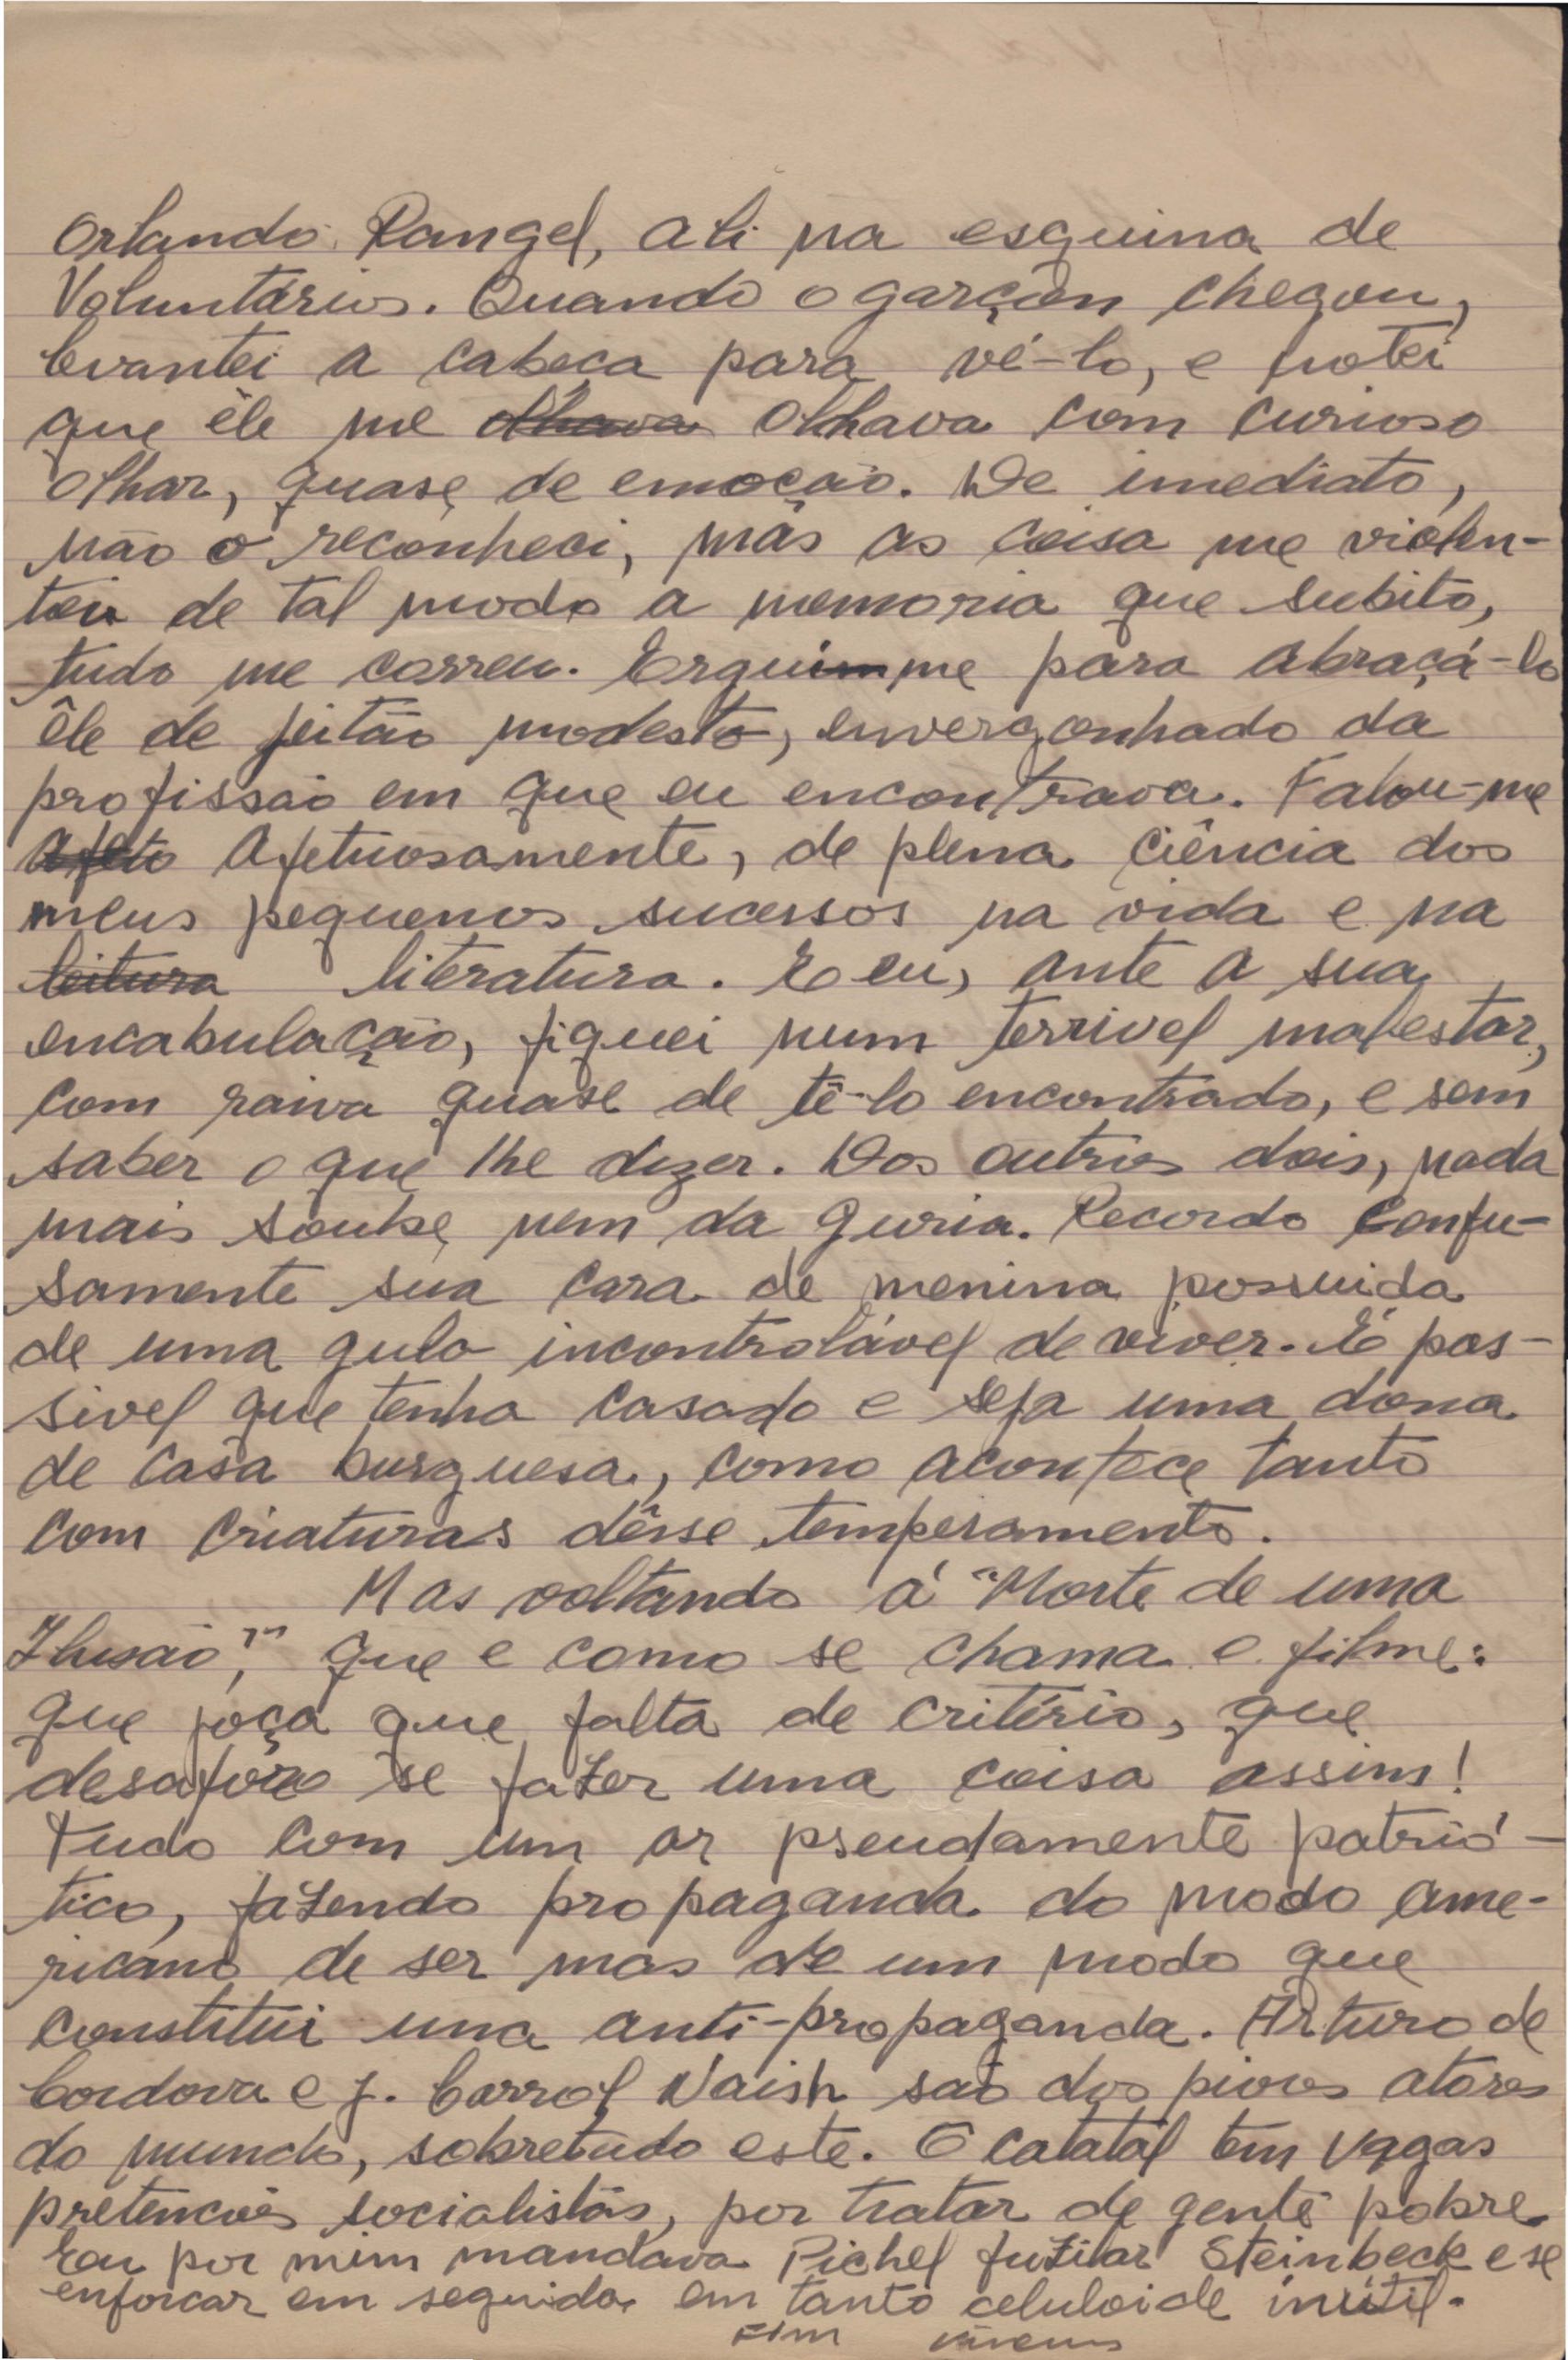 Orlando Rangel, ali na esquina de
Voluntários. Quando o garçon chegou,
levantei a cabeça para vê-lo, e notei
que êle me olhava olhava com curioso
olhar, quase de emoção. De imediato,
não o reconheci, mas as coisa me violen-
tou de tal modo a memoria que subito,
tudo me correu. Erguim me para abraçá-lo
êle de jeitão modesto, envergonhado da
profissão em que eu encontrava. Falou-me
afeto afetuosamente, de plena ciência dos
meus pequenos sucessos na vida e na
leitura literatura. E eu, ante a sua
encabulação, fiquei num terrivel malestar,
com raiva quase de tê-lo encontrado, e sem
saber o que lhe dizer. Dos outros dois, nada
mais soube, nem da guria. Recordo confu-
samente sua cara de menina possuida
de uma gula incontrolável de viver. É pos-
sivel que tenha casado e seja uma dona
de casa burguesa, como acontece tanto
com criaturas dêsse temperamento.
Mas voltando á "Morte de uma
Ilusão", que e como se chama o filme:
que joça que falta de critério, que
desafôro se fazer uma coisa assim!
Tudo com um ar pseudamente patrió-
tico, fazendo propaganda do modo ame-
ricano de ser mas de um modo que
constitui uma anti-propaganda. Arturo de
Cordova e J. Carrol Naish são dos piores atores
do mundo, sobretudo este. O catatál tem vagas
pretenções socialistas, por tratar de gente pobre.
Eu por mim mandava Pichel fuzilar Steinbeck e se
enforcar em seguida em tanto celuloide inútil.